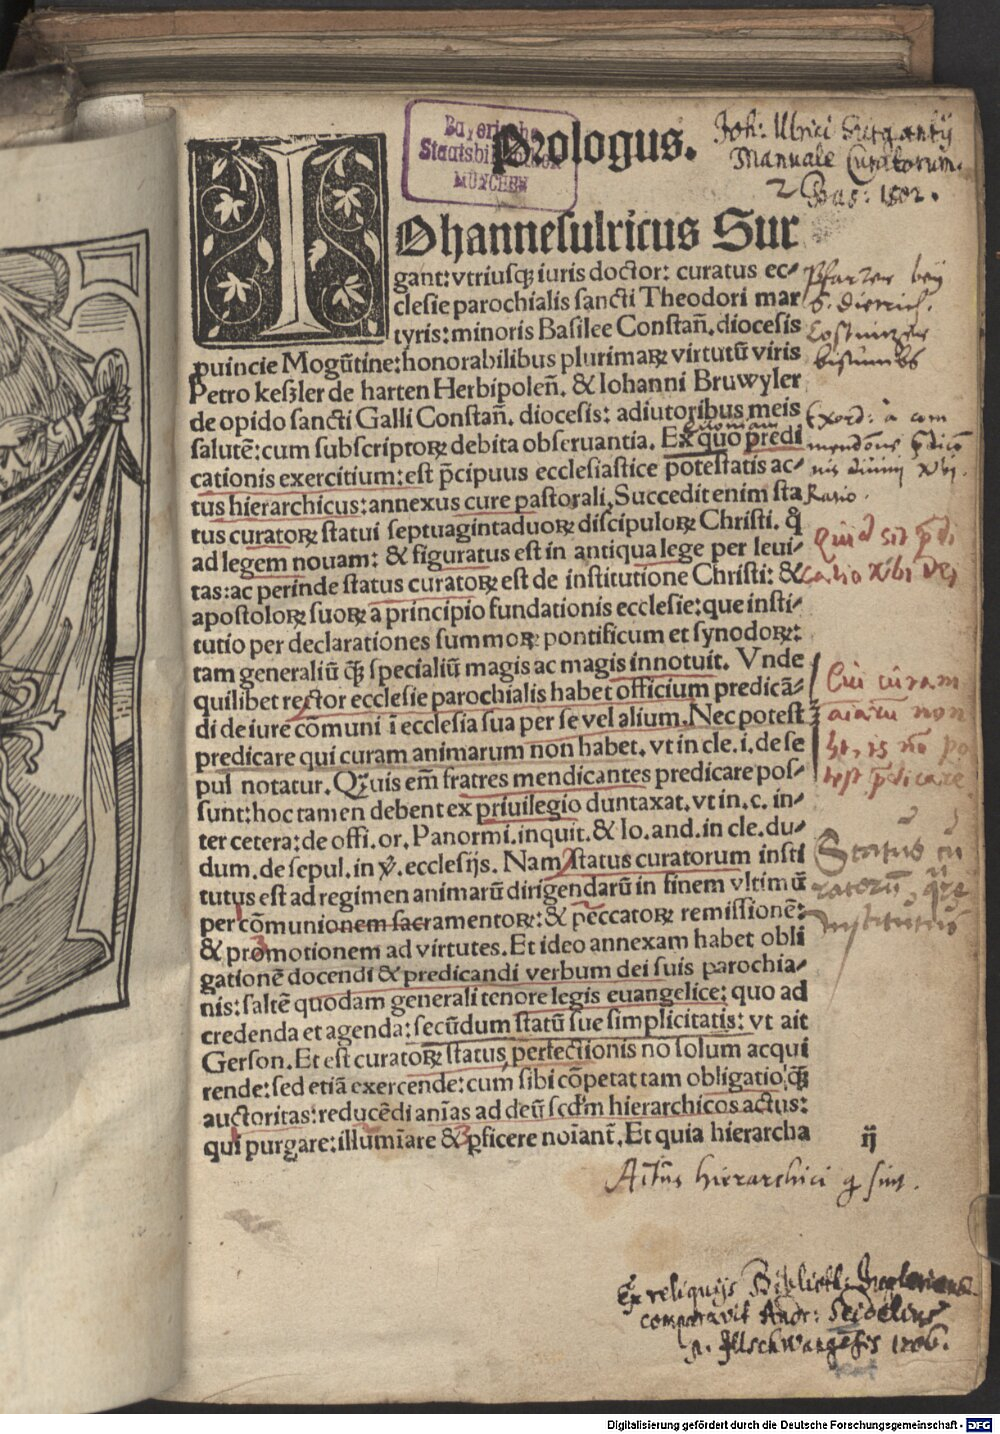 Bayerische
Staatsbibliothek
MÜNCHEN
Prologus.
Joh: Ulrici Surgantij
Manuale Curatorum.
Bas: 1502.
IOhannesulricus Sur
gant: vtriusqꝫ iuris doctor: curatus ec⸗
clesie parochialis sancti Theodori mar
tyris: minoris Basilee Constan̄. diocesis
ꝓuincie Mogūtine: honorabilibus plurimaꝝ virtutū viris
Petro keßler de harten Herbipolen̄. & Iohanni Bruwyler
de opido sancti Galli Constan̄. diocesis: adiutoribus meis
salutē: cum subscriptoꝝ debita obseruantia. Ex quo p̄di
cationis exercitium: est p̄cipuus ecclesiastice potestatis ac⸗
tus hierarchicus: annexus cure pastorali. Succedit enim sta
tus curatoꝝ statui septuagintaduoꝝ discipuloꝝ Christi. q̇
ad legem nouam: & figuratus est in antiqua lege per leui⸗
tas: ac perinde status curatoꝝ est de institutione Christi: &
apostoloꝝ suoꝝ a principio fundationis ecclesie: que insti⸗
tutio per declarationes summoꝝ pontificum et synodoꝝ:
tam generaliū qꝫ̄ specialiū magis ac magis innotuit. Vnde
quilibet rector ecclesie parochialis habet officium predicā⸗
di de iure cōmuni ī ecclesia sua per se vel alium. Nec potest
predicare qui curam animarum non habet. vt in cle. i. de se
pul notatur. Qꝫuis em̄ fratres mendicantes predicare pos⸗
sunt: hoc tamen debent ex priuilegio duntaxat. vt in. c. in⸗
ter cetera: de offi. or. Panormi. inquit. & Io. and. in cle. du⸗
dum. de sepul. in ℣. ecclesijs. Nam status curatorum insti
tutus est ad regimen animarū dirigendarū in finem vltimū
per cōmunionem sacramentoꝝ: & peccatoꝝ remissionē:
& promotionem ad virtutes. Et ideo annexam habet obli
gationē docendi & predicandi verbum dei suis parochia⸗
nis: saltē quodam generali tenore legis euangelice: quo ad
credenda et agenda: secūdum statū sue simplicitatis: vt ait
Gerson. Et est curatoꝝ status, perfectionis no solum acqui
rende: sed etiā exercende: cum sibi cōpetat tam obligatio qꝫ̄
auctoritas: reducēdi anīas ad deū scd̄m hierarchicos actus:
qui purgare: illumīare & ꝑficere noīant̄. Et quia hierarcha
ij
quoniam
Pfarrer bey
S. Dieterich.
Costnitzer
bistumbs
Exord: a com
Ratio.
Quid sit p̄di
catio Xbi Dei
Cui curam
aīarū non
ht, is nō po
test p̄dicare
Status cu
ratorū, qre
institutus
Actus hierarchici q sint.
Ex reliquijs Biblioth:
comparavit Andr: Seidelius
p. Illschwangensis 1706.
Digitalisierung gefördert durch die Deutsche Forschungsgemeinschaft - DFG